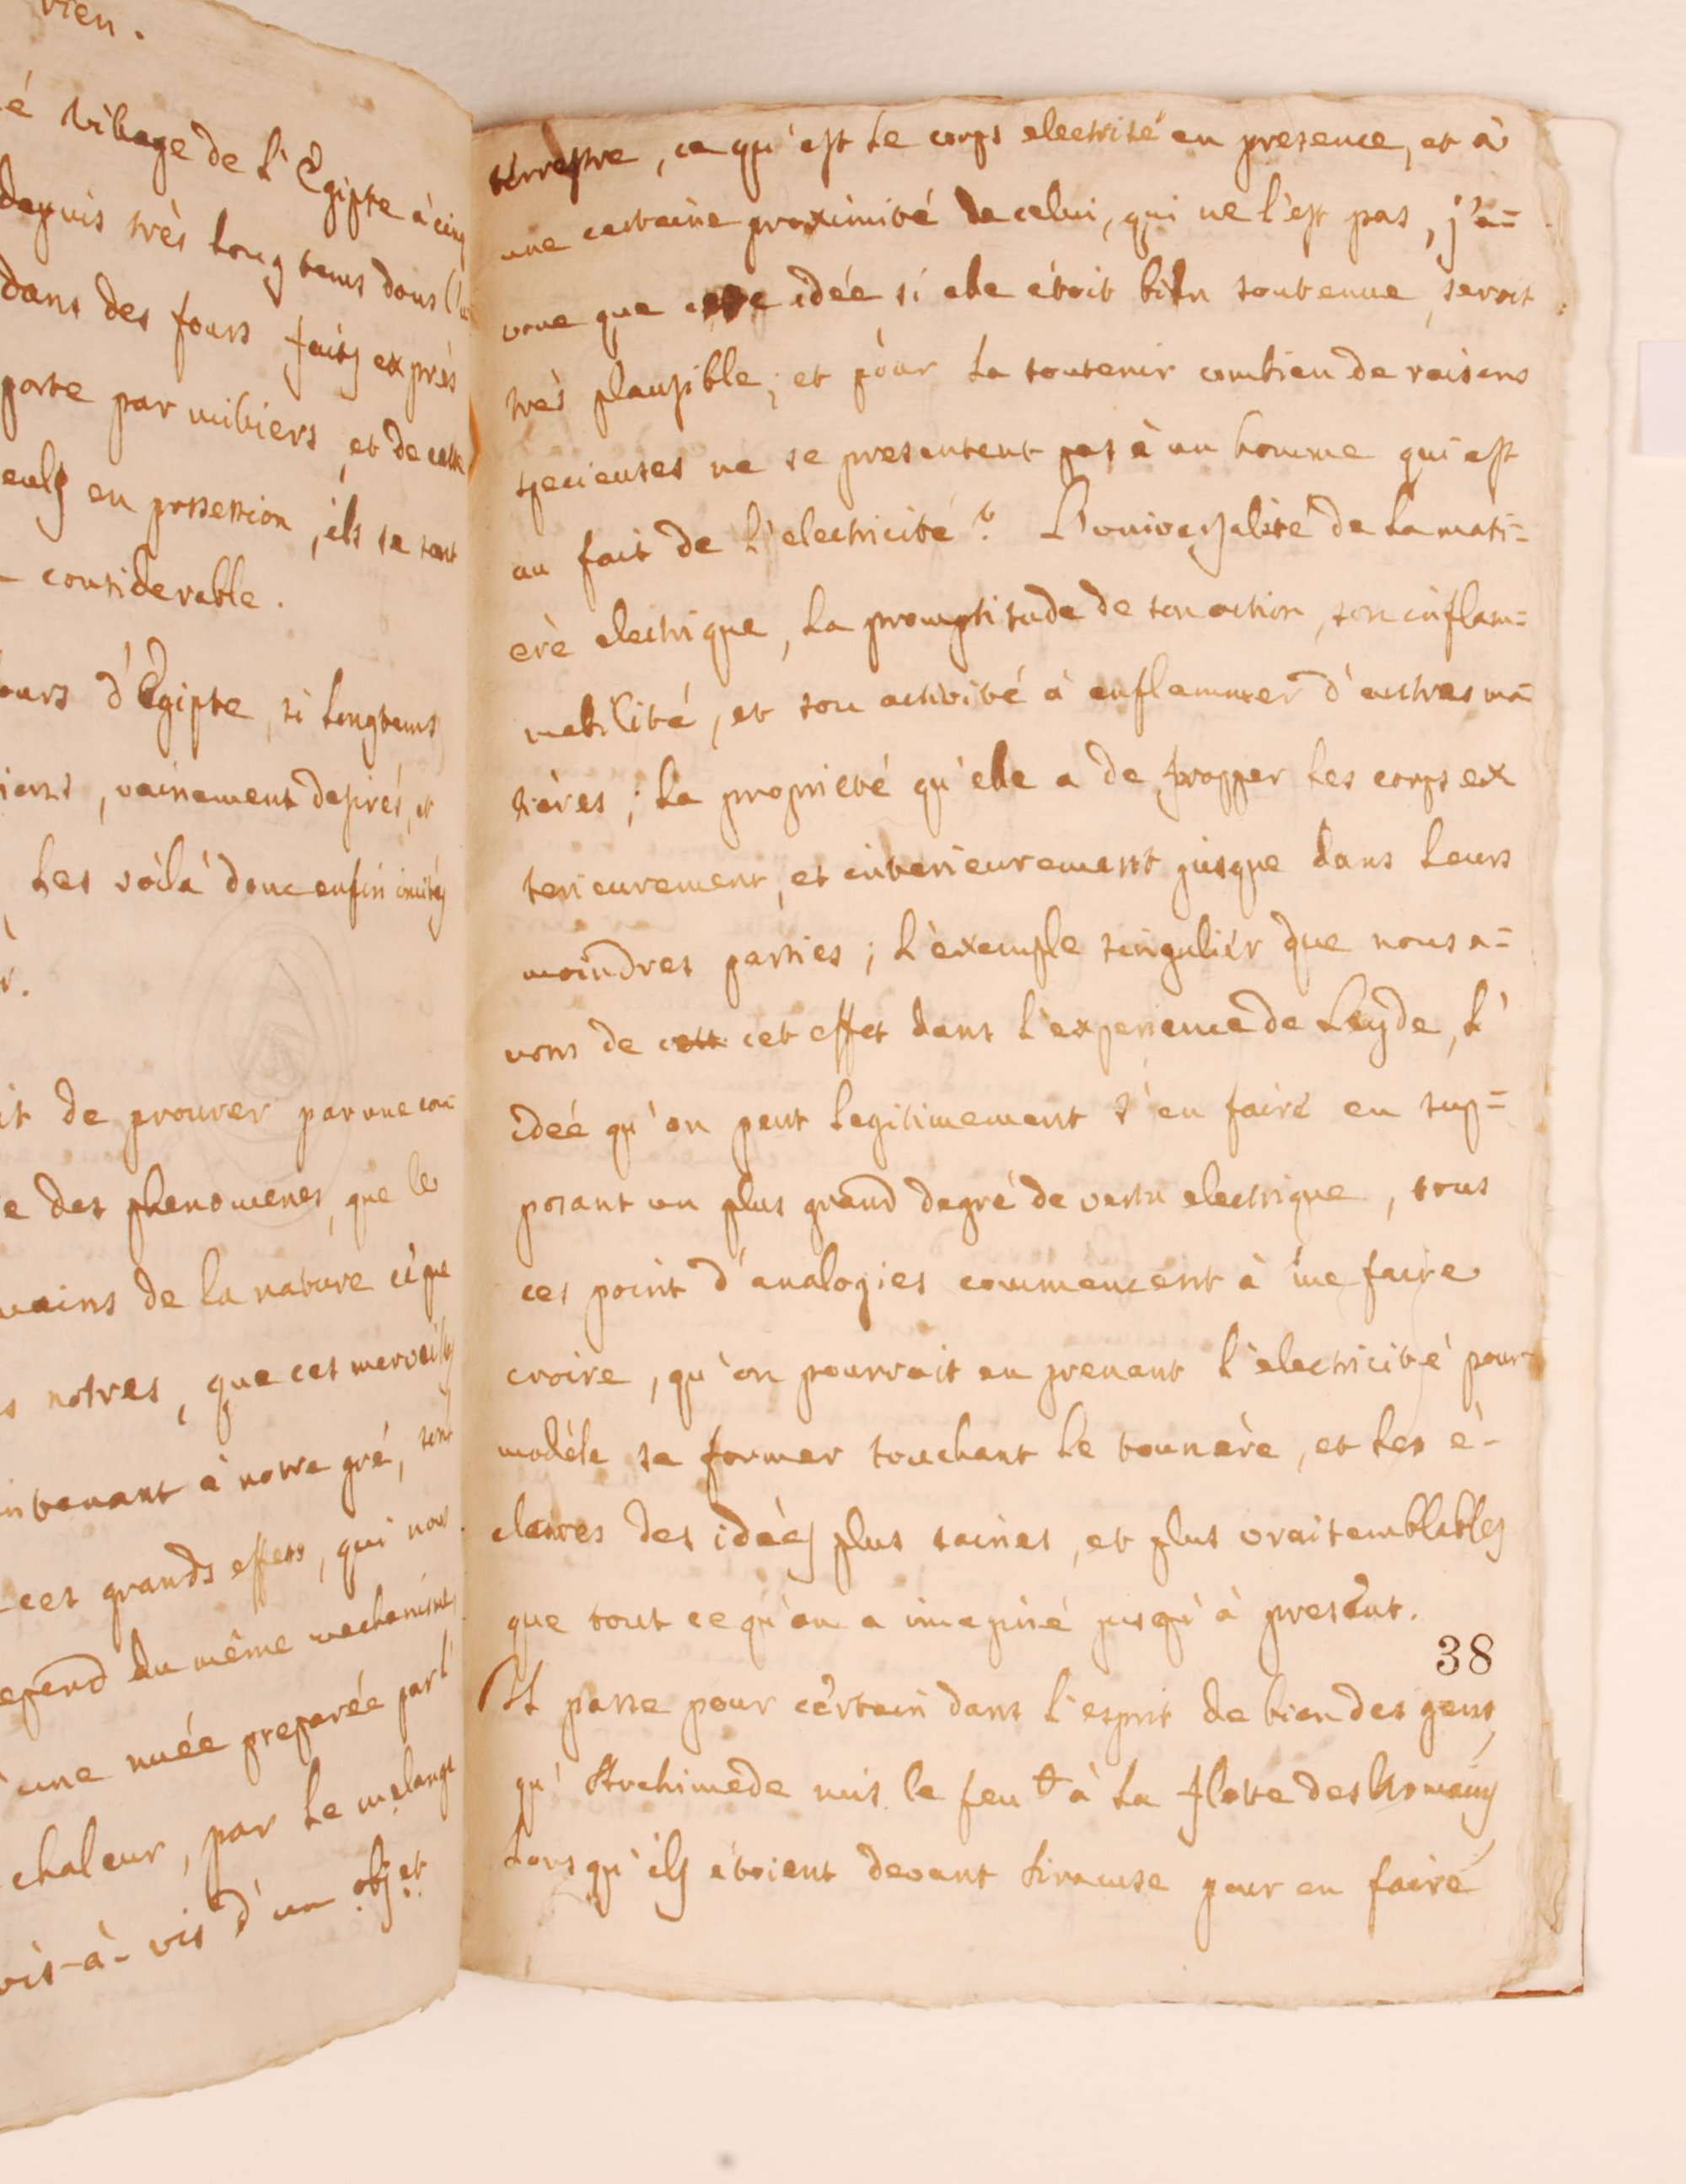 vien.
é vilage de l'Egipte à cinq
depuis très long tems dans l'u
dans des fours faits exprès
porte par miliers, et de cette
euls en possession, ils se sont
considerable.
ours d'Egipte, si longtems
iens, vainement desirés, et
Les voilà donc enfin imités
r.
it de prouver par une com
e des phenomenes, que le
mains de la nature ce que
s notres, que ces merveilles
intenant à notre gré, sont
ces grands effets, qui nous
epend du même mechanisme,
une nuée preparée par l'
chaleur, par le melange
vis-à-vis d'un objet
terrestre, ce qu'est le corps electrisé en presence, et à
une certaine proximité de celui, qui ne l'est pas, j'a=
voue que cette idée si elle étoit bien soutenue, seroit
très plausible; et pour la soutenir combien de raisons
specieuses ne se presentent pas à un homme qui est
au fait de l'electricité? L'universalité de la mati=
ère electrique, la promptitude de son action, son inflam=
mabilité, et son activité à enflammer d'autres ma=
tières; la proprieté qu'elle a de frapper les corps ex
terieurement, et interieurement jusque dans leurs
moindres parties; l'exemple singulier que nous a=
vons de cette cet effet dans l'experience de Leyde, l'
idée qu'on peut legitimement s'en faire en sup=
posant un plus grand degré de vertu electrique, tous
ces point d'analogies commencent à me faire
croire, qu'on pourrait en prenant l'electricité pour
modèle se former touchant le tonnère, et les é-
claires des idées plus saines, et plus vraisemblables
que tout ce qu'on a imaginé jusqu'à present.
38
Il passe pour certain dans l'esprit de bien des gens,
qu'Archimede mis le feu à la flotte des Romains
Lorsqu'ils étoient devant Siracuse pour en faire